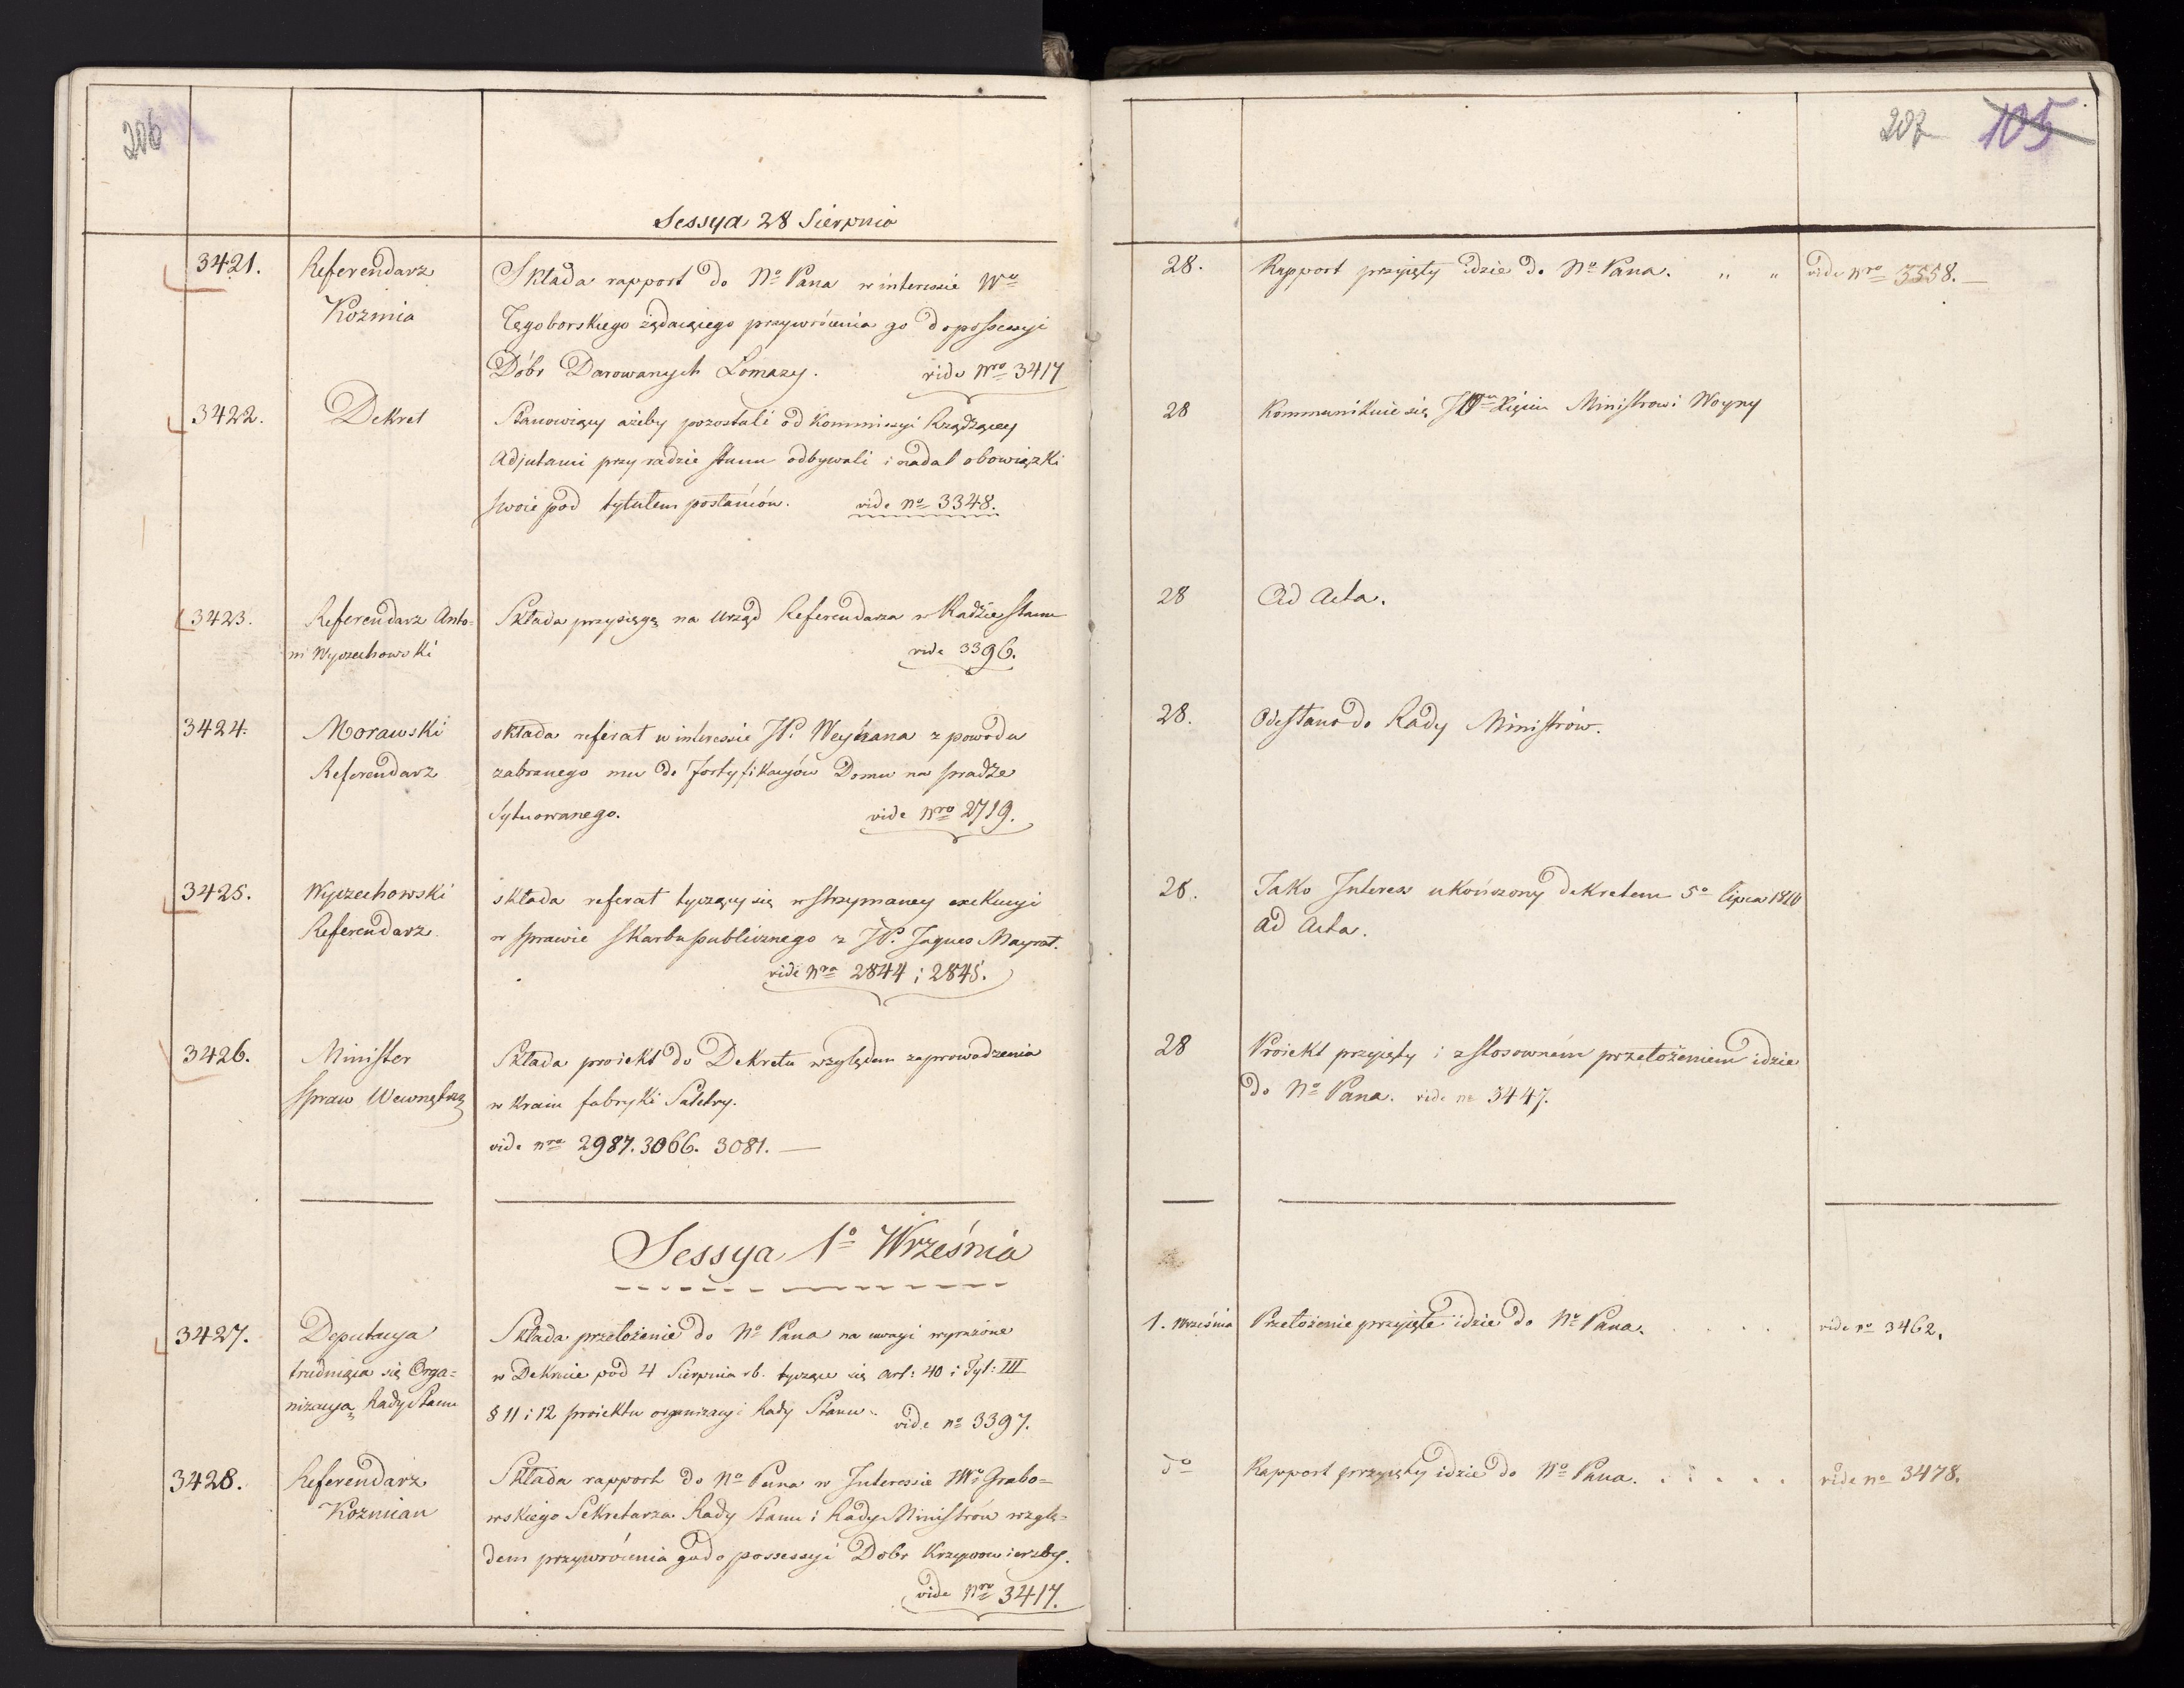 206
Sessya 28 Sierpnia
3421.
Referendarz
Kozmia
Składa rapport do No Pana w interessie Wo
Tęgoborskiego żądaiącego przywrócenia go do possessyi
Dóbr Darowanych Łomazy. vide Nro 3417
3422.
Dekret
Stanowiący ażeby pozostali od Kommissyi Rządzącey
Adjutanci przy radzie stanu odbywali i nadal obowiązki
swoie pod tytułem posłańców. vide no 3348.
3423.
Referendarz Anto=
ni Wyczechowski
Składa przysięgę na urząd Referendarza w Radzie Stanu
vide 3396.
3424.
Morawski
Referendarz
składa referat w interessie JP. Weyhana z powodu
zabranego mu do fortyfikacyów Domu na pradze
Sytuowanego. vide Nro 2719.
3425.
Wyczechowski
Referendarz
składa referat tyczący się wstrzymaney exekucyi
w sprawie Skarbu publicznego z JP. Jaques Mayrat.
vide Nra 2844 i 2845.
3426.
Minister
Spraw Wewnętrz
Składa proiekt do Dekretu względem zaprowadzenia
w Kraiu fabryki Saletry.
vide nra 2987. 3066. 3081. —
Sessya 1o Września
3427.
Deputacya
trudniąca się Orga=
nizacyą Rady Stanu
Składa przełożenie do No Pana na uwagi wyrażone
w Dekrecie pod 4 Sierpnia rb. tyczące się art: 40 i Tyt: III
§ 11 i 12 proiektu organizacyi Rady Stanu. vide no 3397.
3428.
Referendarz
Kozmian
Składa rapport do No Pana w Interessie JWo Grabo=
wskiego Sekretarza Rady Stanu i Rady Ministrów wzglę=
dem przywrócenia go do possessyi Dobr Krzywowierzby.
vide Nro 3417.
207 105
28. Rapport przyięty idzie do No Pana. " " vide Nro 3558. —
28 Kommunikuie się Xięciu Ministrowi Woyny
28 Ad Acta.
28. Odesłano do Rady Ministrów.
28. Jako Interess ukończony dekretem 5o lipca 1810
ad Acta.
28 Proiekt przyięty i z stosownem przełożeniem idzie
do No Pana. vide no 3447.
1. Września Przełożenie przyięte idzie do No Pana. . . . . vide no 3462.
do Rapport przyięty idzie do No Pana. . . . . . vide no 3478.